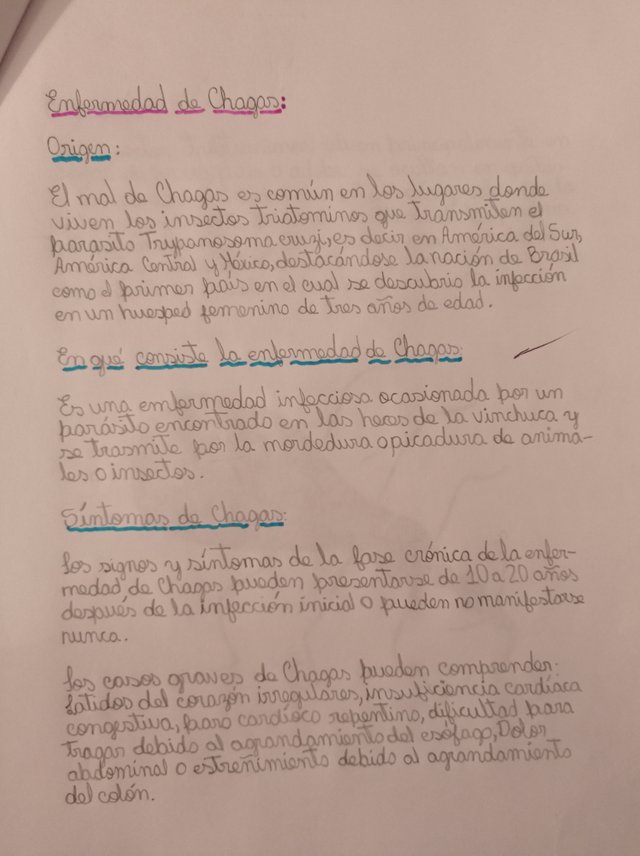 Enfermedad de Chagas:
Origen:
El mal de Chagas es común en los lugares donde
viven los insectos triatominos que transmiten el
parasito Trypanosoma cruzi, es decir en América del Sur,
América Central y México, destacándose la nación de Brasil
como el primer país en el cual se descubrio la infección
en un huesped femenino de tres años de edad.
En qué consiste la enfermedad de Chagas:
Es una emfermedad infecciosa ocasionada por un
parásito encontrado en las heces de la vinchuca y
se trasmite por la mordedura o picadura de anima-
les o insectos.
Síntomas de Chagas:
Los signos y síntomas de la fase crónica de la enfer-
medad de Chagas pueden presentarse de 10 a 20 años
después de la infección inicial o pueden no manifestarse
nunca.
Los casos graves de Chagas pueden comprender:
Latidos del corazón irregulares, insuficiencia cardíaca
congestiva, paro cardíaco repentino, dificultad para
tragar debido al agrandamiento del esófago, Dolor
abdominal o estreñimiento debido al agrandamiento
del colón.